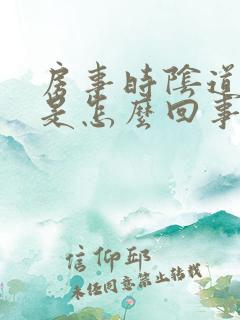 房事時陰道
是怎麼回事
信仰邱
未经同意禁止转载